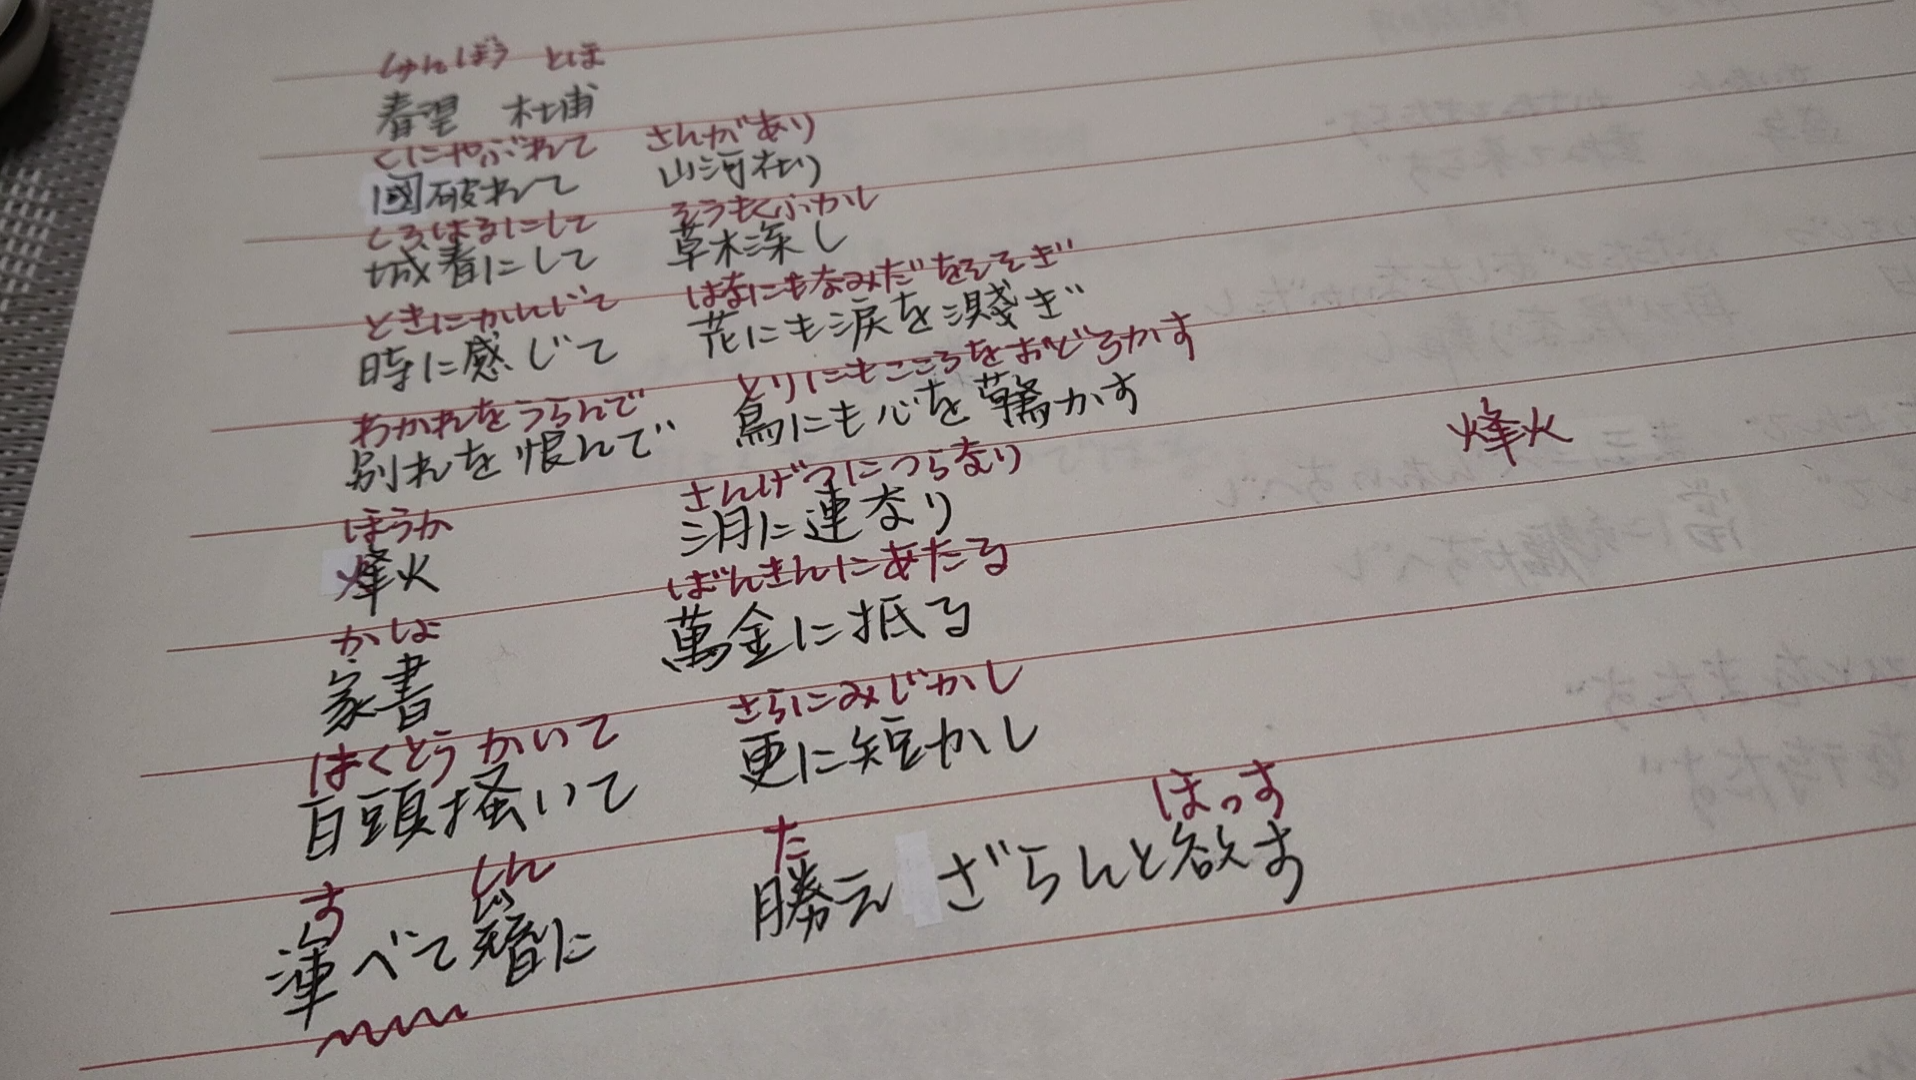 しゅんぼう とほ
春望 杜甫
くにやぶれて さんがあり
國破れて 山河在り
しろはるにして そうもくふかし
城春にして 草木深し
ときにかんじて はなにもなみだをそそぎ
時に感じて 花にも涙を濺ぎ
わかれをうらんで とりにもこころをおどろかす
別れを恨んで 鳥にも心を驚かす
ほうか さんげつにつらなり
烽火 三月に連なり
烽火
かしょ ばんきんにあたる
家書 萬金に抵る
はくとうかいて さらにみじかし
白頭掻いて 更に短かし
す しん た ほっす
渾べて簪に 勝えざらんと欲す